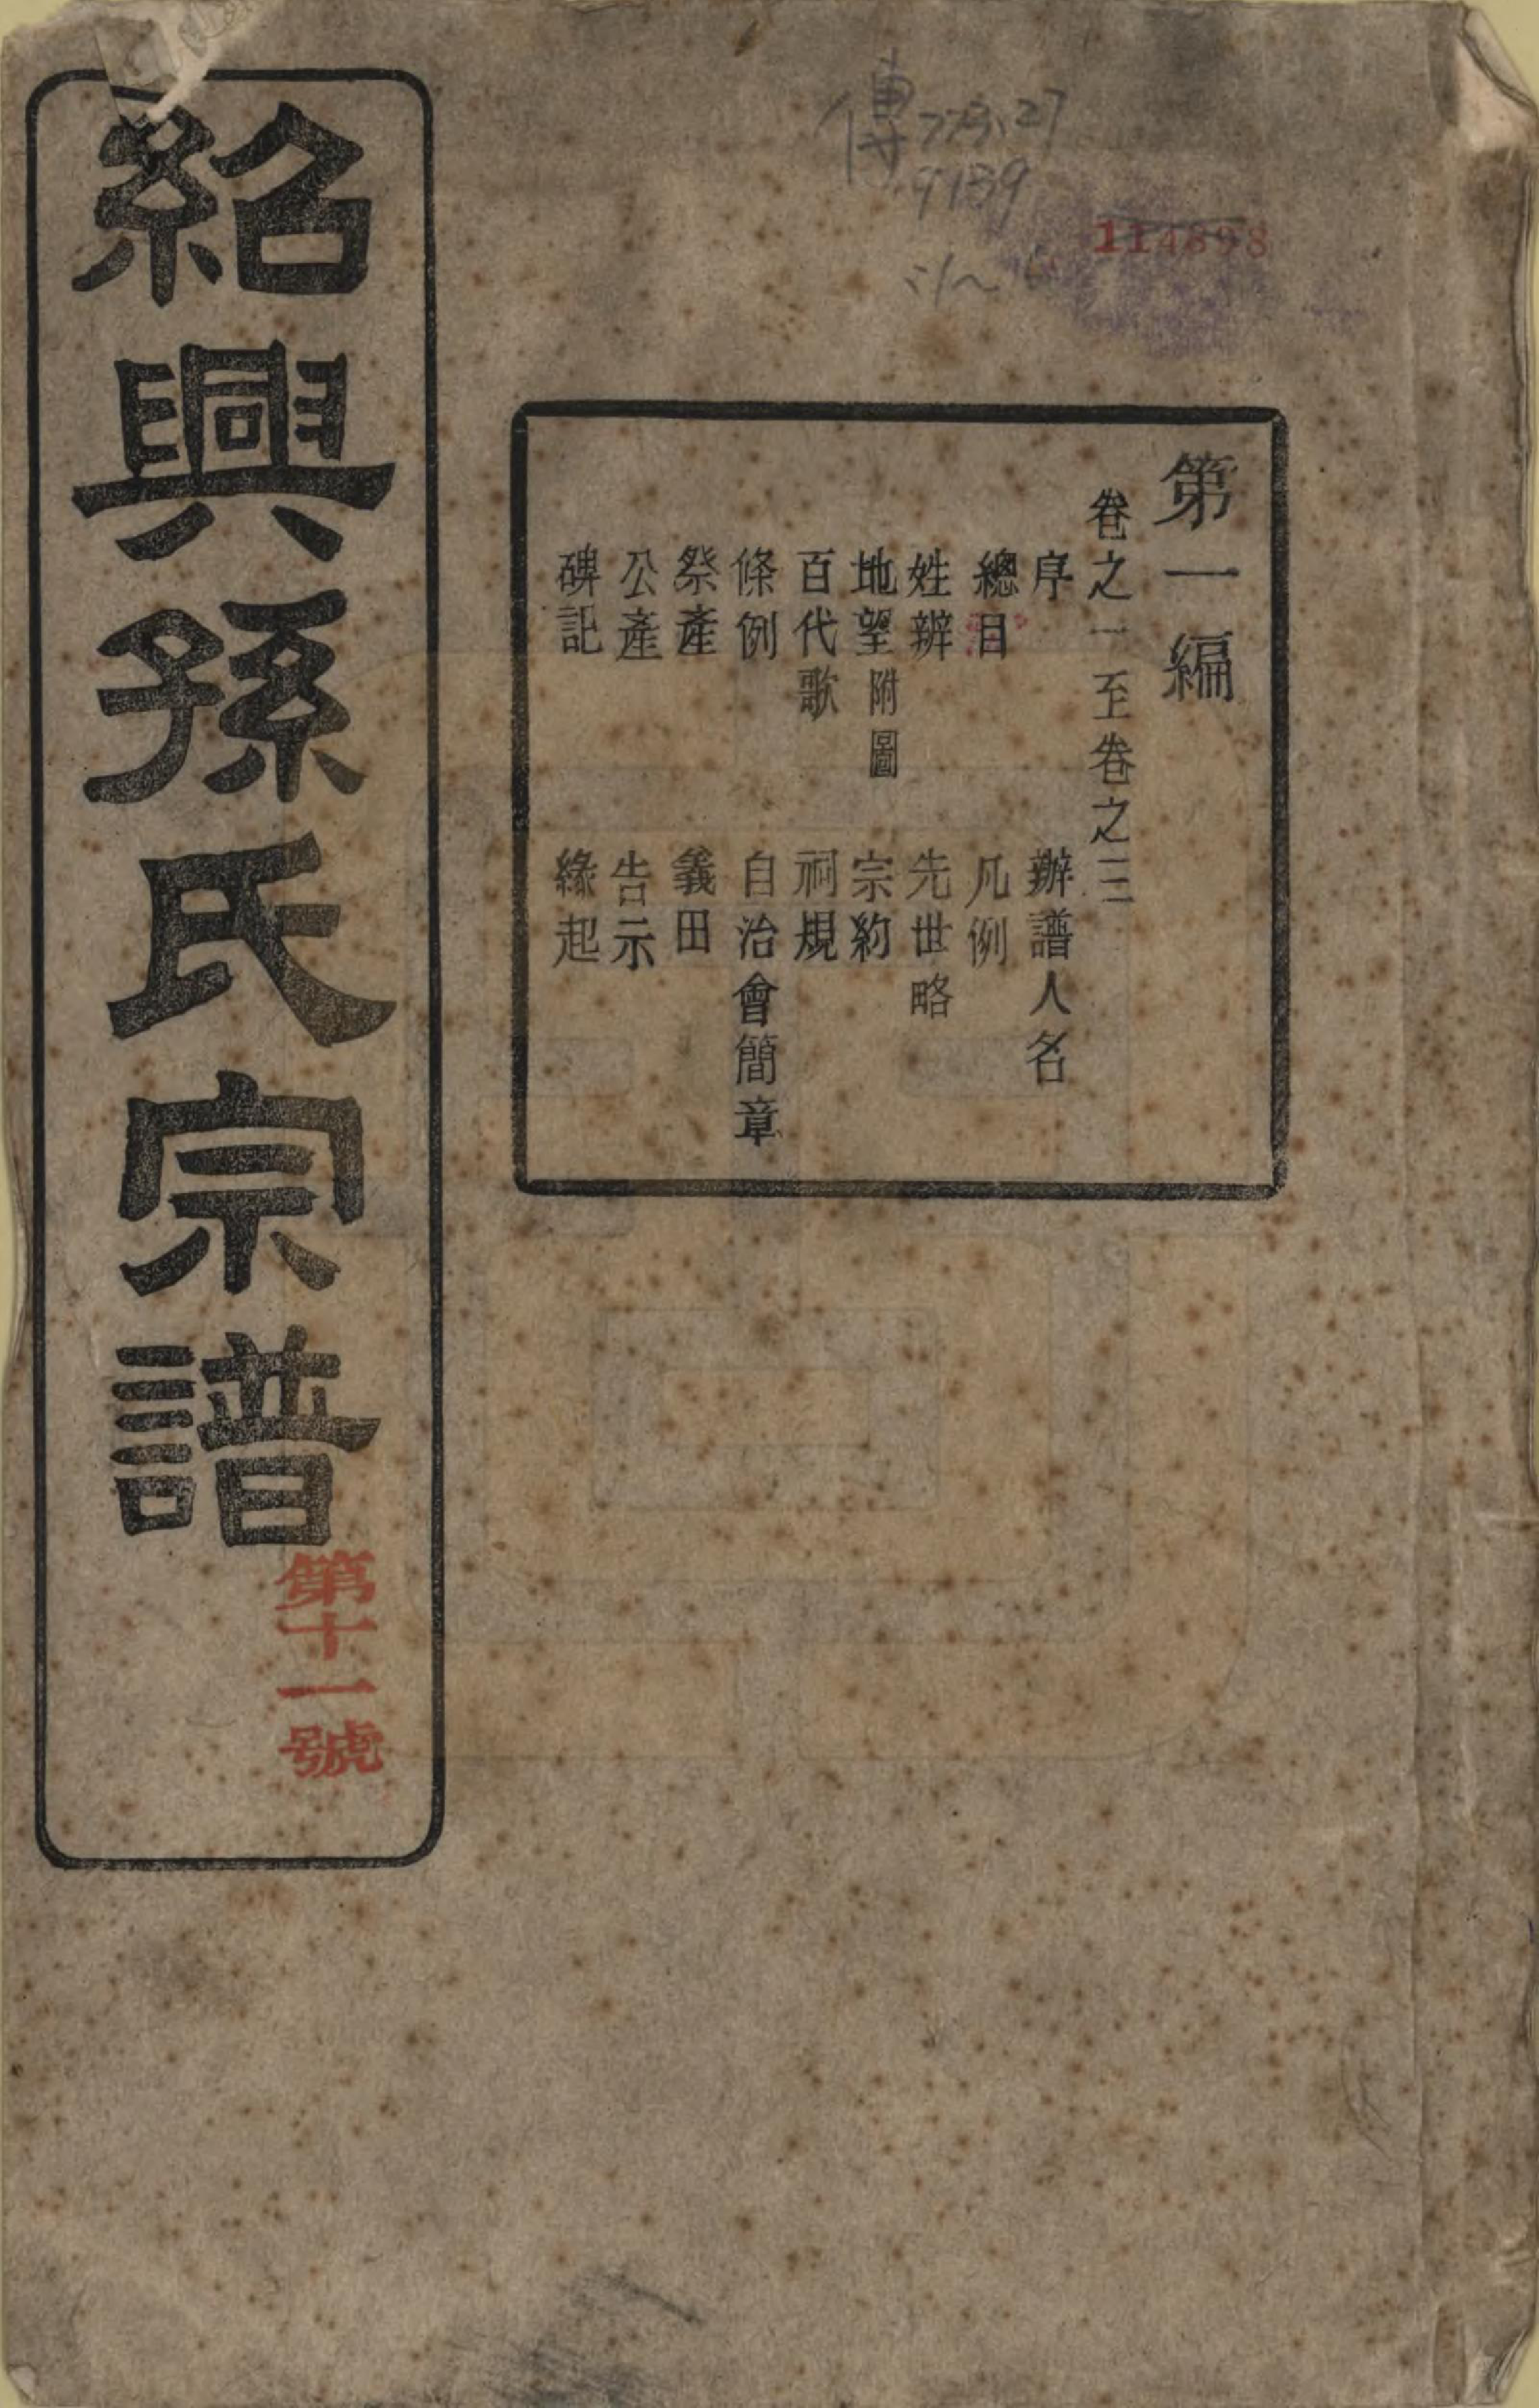 傳 773.27
9139
114898
第一編
卷之一至卷之三
序 辦譜人名
總目 凡例
姓辨 先世略
地望附圖 宗約
百代歌 祠規
條例 自治會簡章
祭產 義田
公產 告示
碑記 緣起
紹興孫氏宗譜
第十一號